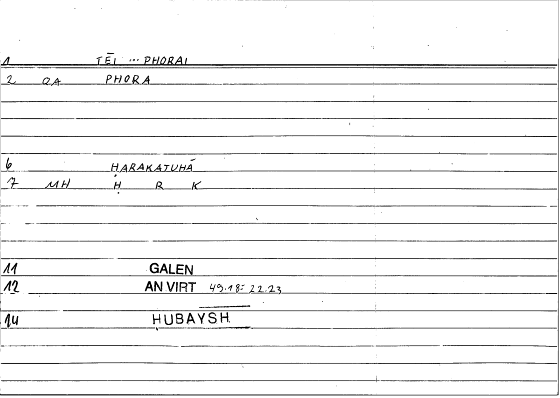 1 TĒI ... PHORAI
2 QA PHORA
6 ḤARAKATUHĀ
7 MH Ḥ R K
11 GALEN
12 AN VIRT 49.18= 22.23
14 ḤUBAYSH